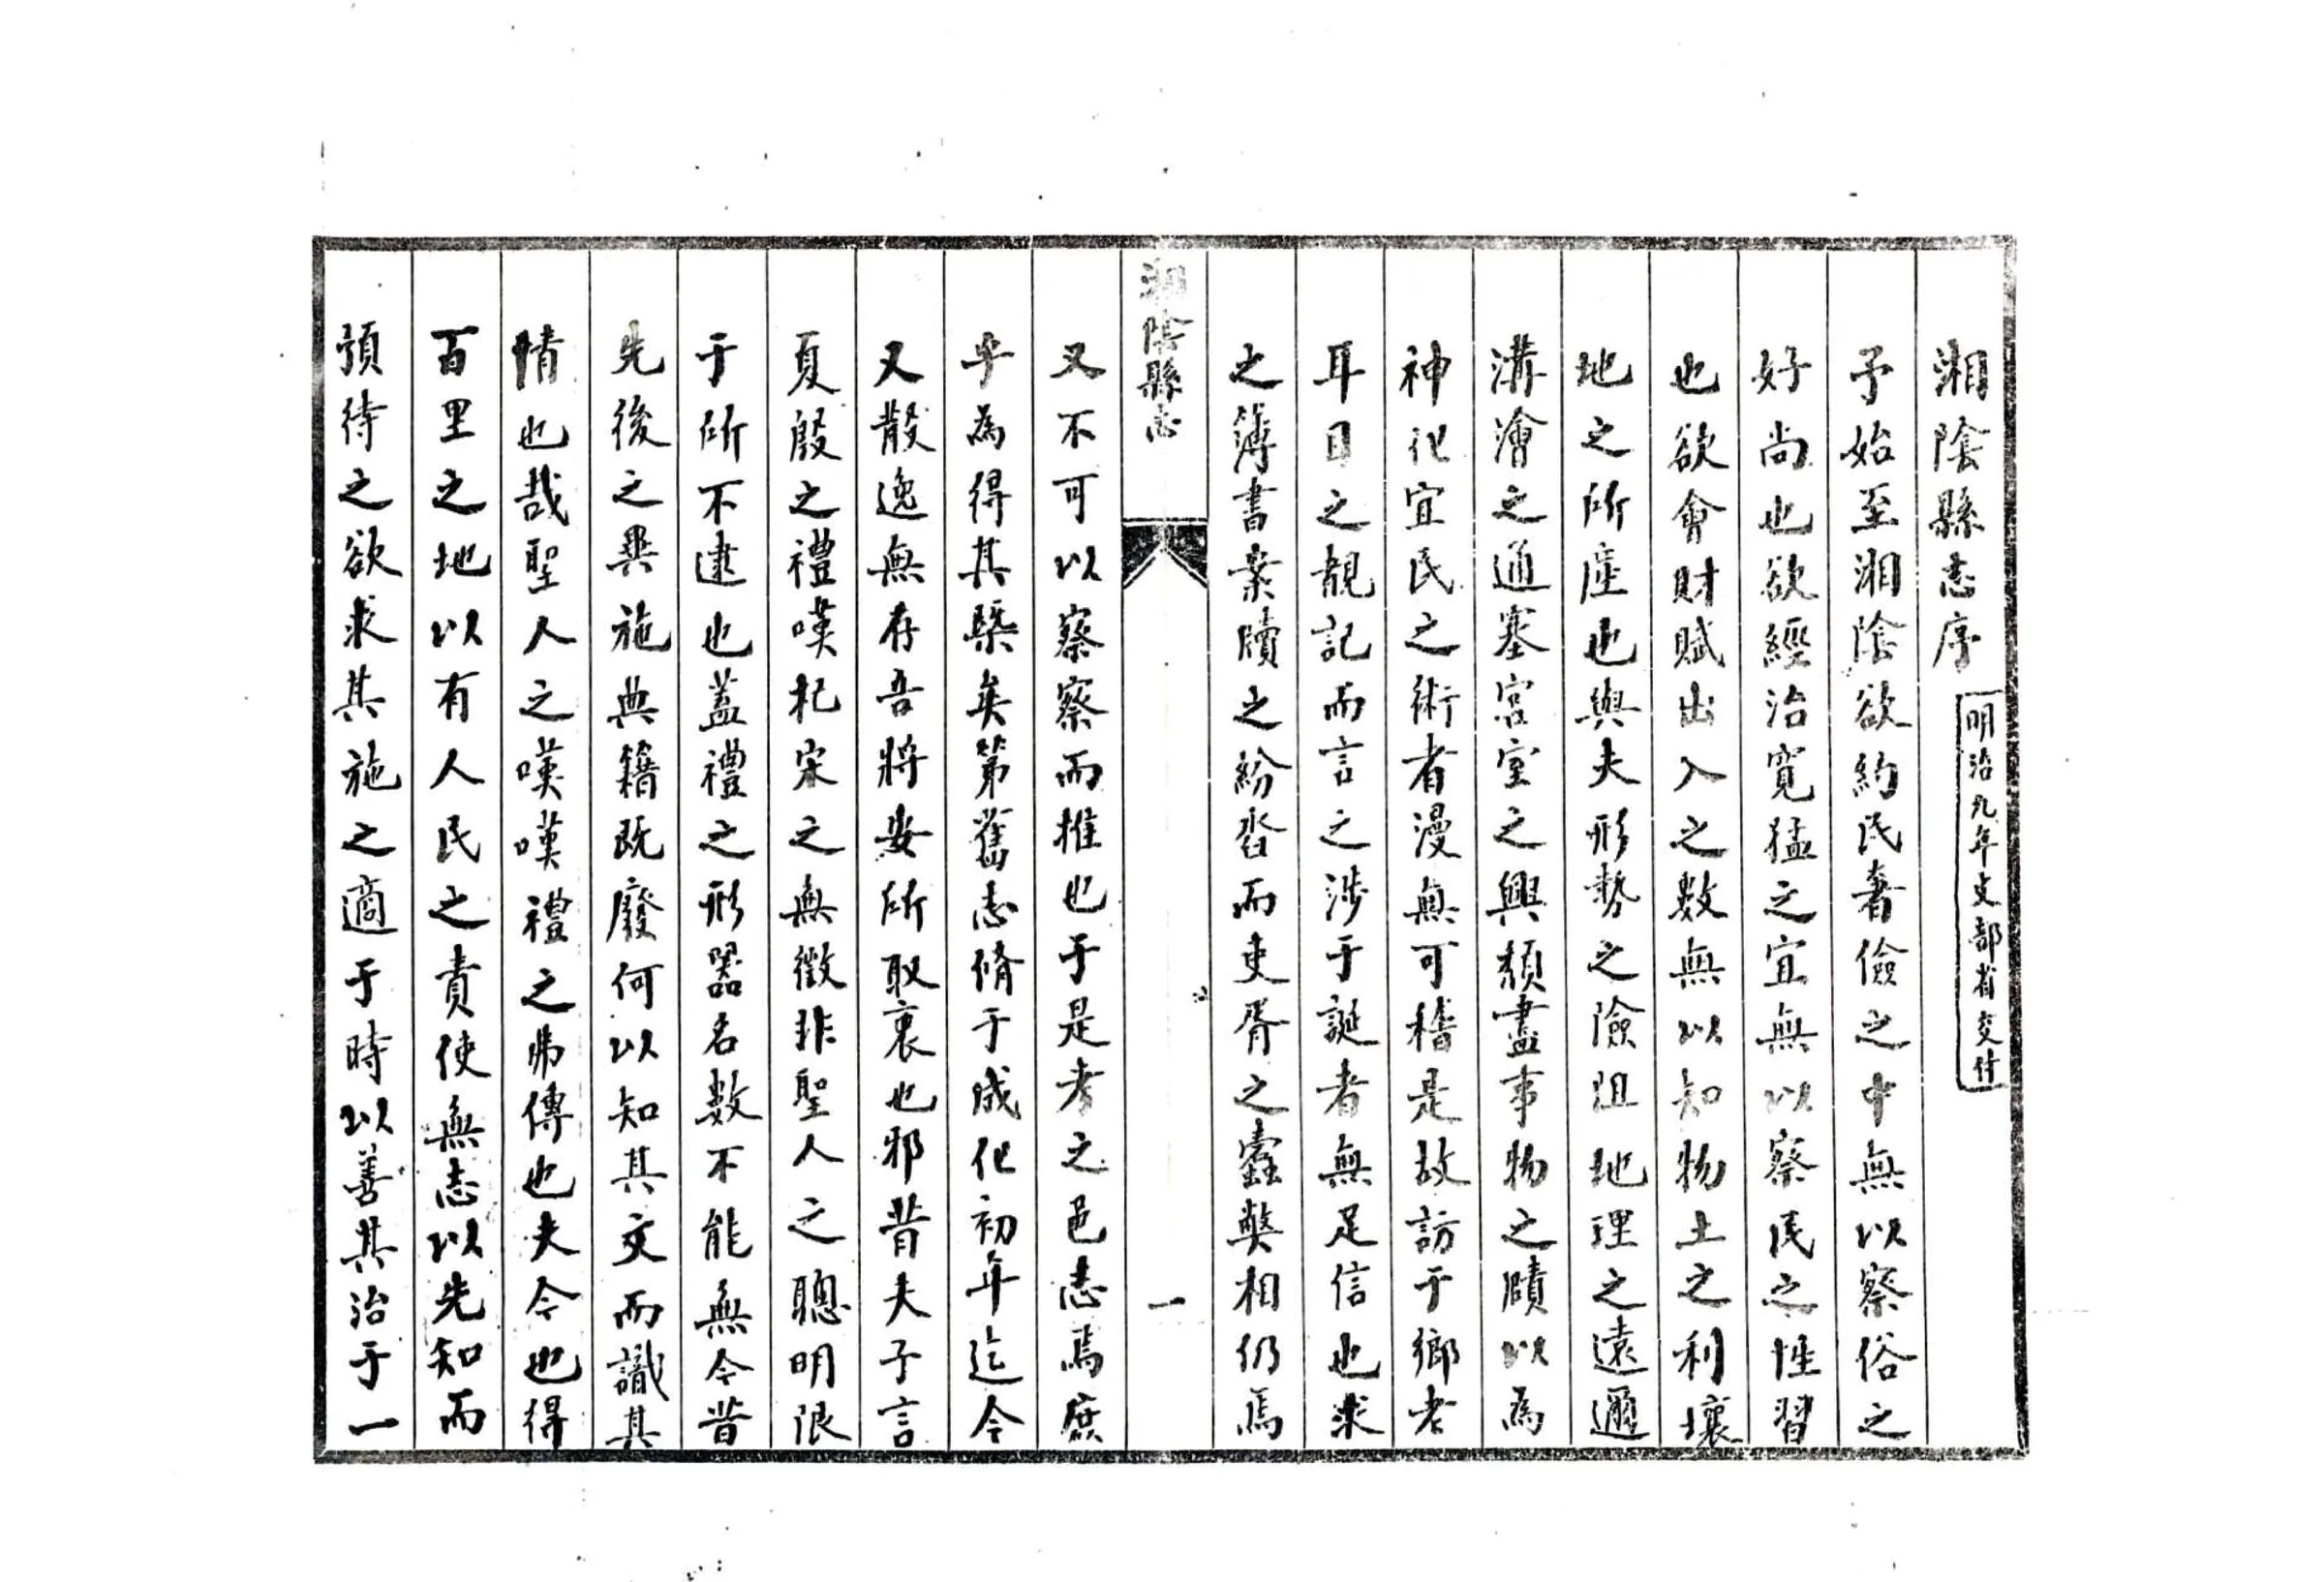 湘陰縣志序
明治九年文部省交付
予始至湘陰欲約民奢儉之中無以察俗之
好尚也欲經治寬猛之宜無以察民之性習
也欲會財賦出入之數無以知物土之利壤
地之所產也與夫形勢之險阻地理之遠邇
溝澮之通塞宮室之興頹盡事物之賾以為
神化宜民之術者漫無可稽是故訪于鄉老
耳目之覩記而言之涉于誕者無足信也求
之簿書案牘之紛沓而吏胥之蠹弊相仍焉
湘陰縣志
一
又不可以察察而推也于是考之邑志焉庶
乎為得其槩矣第舊志脩于成化初年迄今
又散逸無存吾將安所取衷也邪昔夫子言
夏殷之禮嘆杞宋之無徵非聖人之聰明限
于所不逮也蓋禮之形器名數不能無今昔
先後之異施典籍既廢何以知其文而識其
情也哉聖人之嘆嘆禮之弗傳也夫今也得
百里之地以有人民之責使無志以先知而
預待之欲求其施之適于時以善其治于一